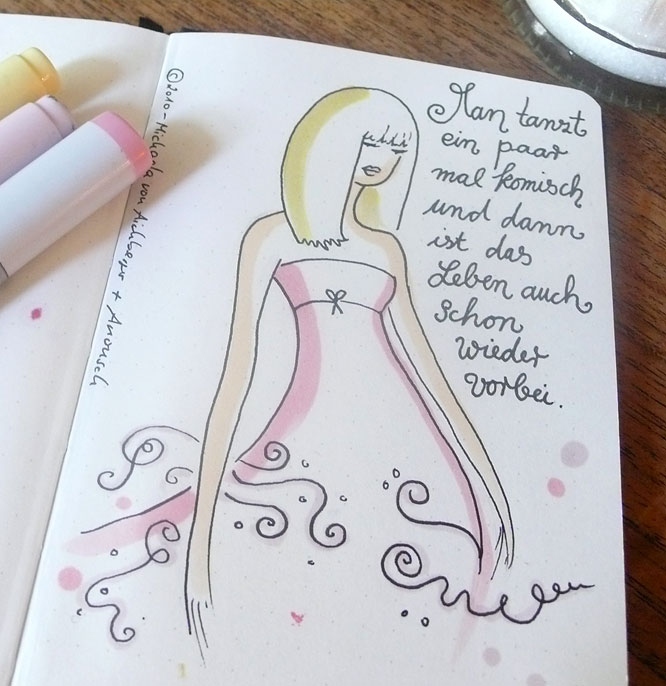 Man tanzt
ein paar
mal komisch
und dann
ist das
Leben auch
schon
wieder
vorbei.
©2010-Michaela von Aichberger +